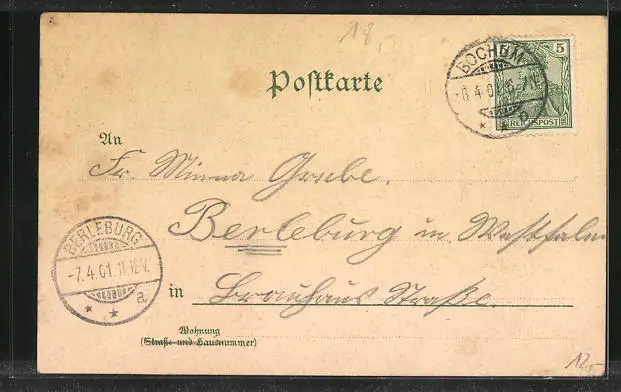 18,-
BOCHUM
-6.4.01 6-7N
* * P
5
REICHSPOST
Postkarte
An
Fr. Minna Grebe.
Berleburg in Westfalen
in Brauhaus Straße.
BERLEBURG
-7.4.01. 11-12V.
* * a
Wohnung
(Straße und Hausnummer)
12,-